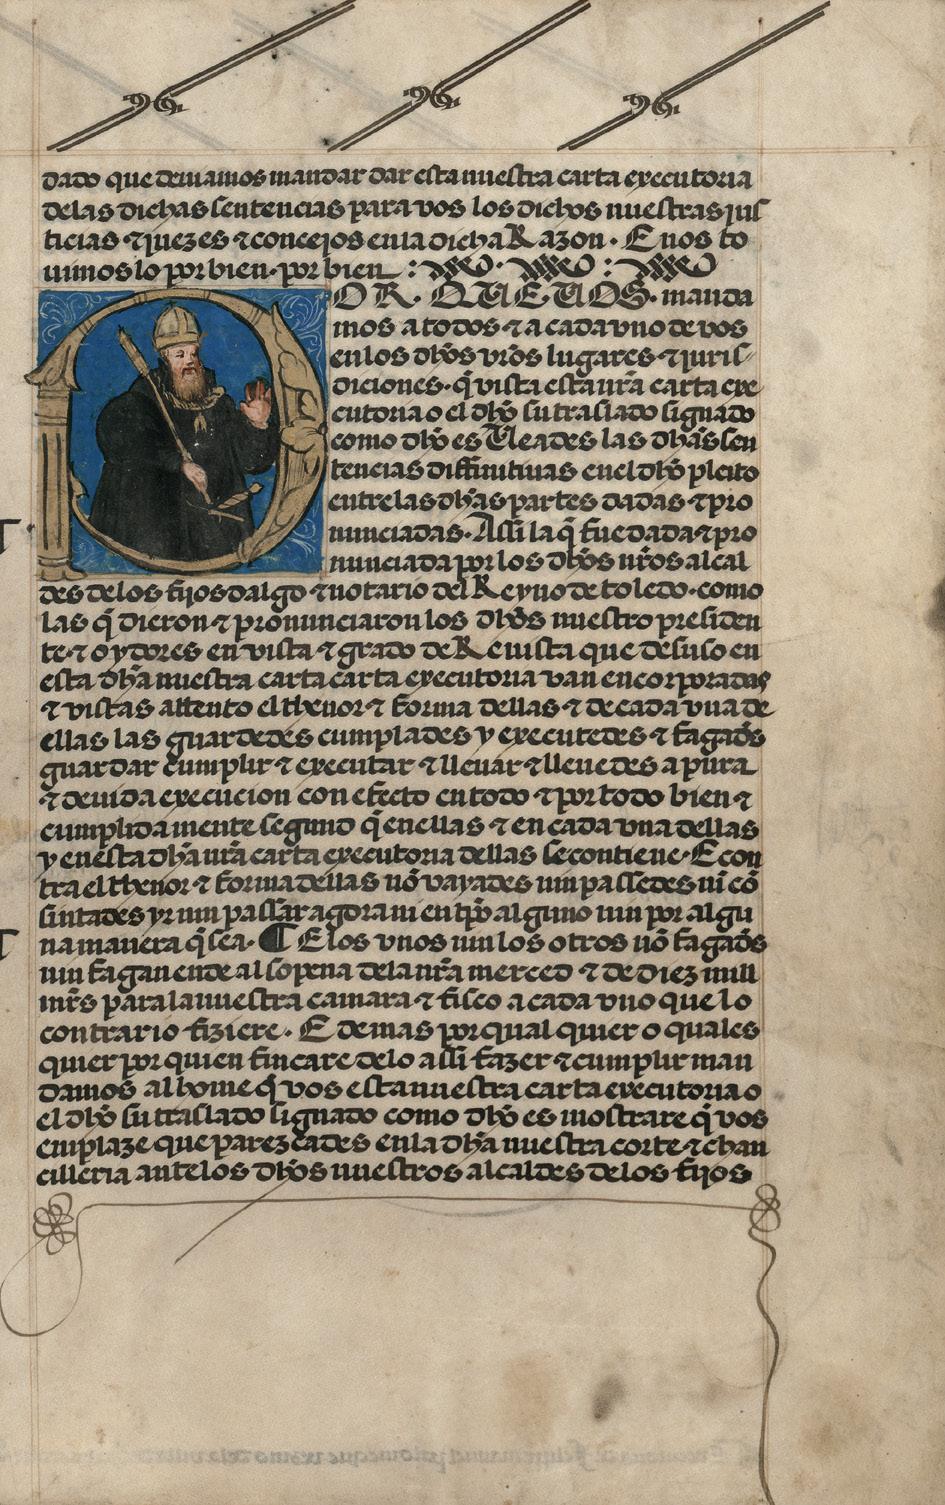 dado que deuiamos mandar dar esta nuestra carta executoria
de las dichas sentencias para vos los dichos nuestras jus
ticias ⁊ juezes ⁊ concejos en la dicha Razon. E nos to
uimos lo por bien. por bien
OR. QUE UOS. manda
mos a todos ⁊ a cada vno de vos
en los dhos vros lugares ⁊ juris
diciones. q̃ vista esta nrã carta exe
cutoria o el dho su traslado signado
como dho es Ueades las dhas sen
tencias diffinitiuas en el dho pleito
entre las dhas partes dadas ⁊ pro
nunciadas. Assi la q̃ fue dada ⁊ pro
nunciada por los dhos nros alcal
des de los fijos dalgo ⁊ notario del Reyno de toledo. como
las q̃ dieron ⁊ pronunciaron los dhos nuestro presiden
te ⁊ oydores en vista ⁊ grado de Reuista que de suso en
esta dha nuestra carta carta executoria van encorporadas
⁊ vistas attento el thenor ⁊ forma dellas ⁊ de cada vna de
ellas las guardedes cumplades y executedes ⁊ fagades
guardar cumplir ⁊ executar ⁊ lleuar ⁊ lleuedes a pura
⁊ deuida execucion con efecto en todo ⁊ por todo bien ⁊
cumplidamente segund q̃ en ellas ⁊ en cada vna dellas
y en esta dha nrã carta executoria dellas se contiene. E con
tra el thenor ⁊ forma dellas nõ vayades nin passedes ni cõ
sintades yr nin passar agora ni en tpo alguno nin por algu
na manera q̃ sea. ¶ E los vnos nin los otros nõ fagades
nin fagan ende al so pena de la nrã merced ⁊ de diez mill
mrs para la nuestra camara ⁊ fisco a cada vno que lo
contrario fiziere. E demas por qual quier o quales
quier por quien fincare de lo assi fazer ⁊ cumplir man
damos al home q̃ vos esta nuestra carta executoria o
el dho su traslado signado como dho es mostrare q̃ vos
emplaze que parezcades en la dha nuestra corte ⁊ chan
cilleria ante los dhos nuestros alcaldes de los fijos